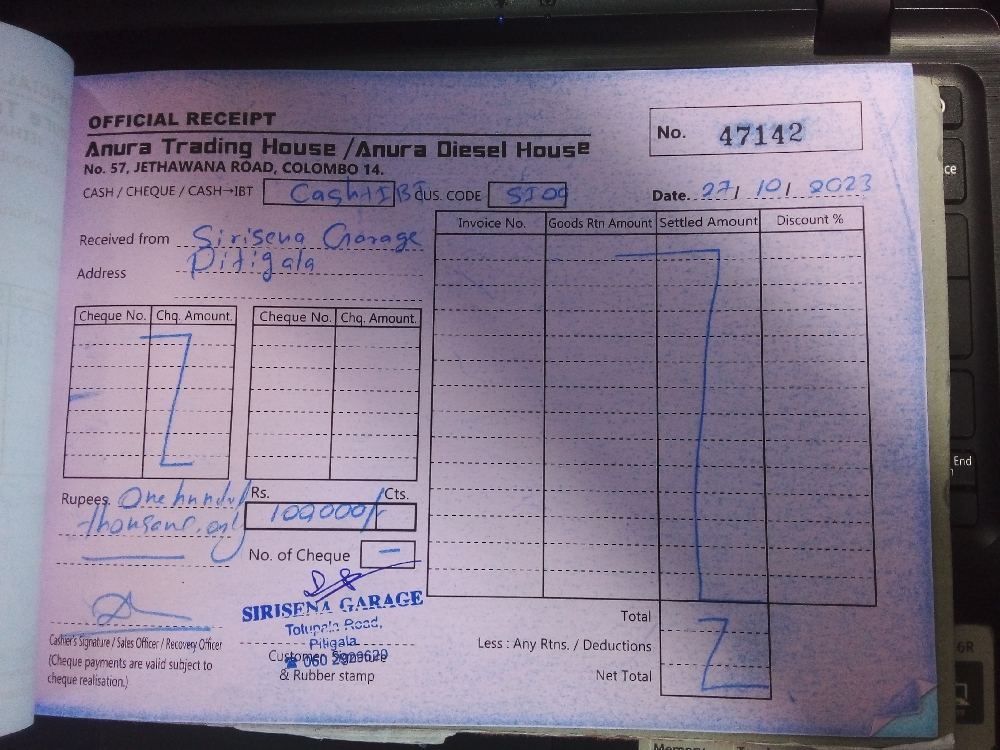 OFFICIAL RECEIPT
No. 47142
Anura Trading House /Anura Diesel House
No. 57, JETHAWANA ROAD, COLOMBO 14.
CASH / CHEQUE / CASH→IBT Cash+IBT CUS. CODE SI09
Date. 27/ 10/ 2023
Received from Sirisena Garage
Address Pitigala
Invoice No. Goods Rtn Amount Settled Amount Discount %
Cheque No. Chq. Amount. Cheque No. Chq. Amount.
Rupees One hundred Rs. 100,000/- Cts.
thousand only
No. of Cheque –
SIRISENA GARAGE
Total
Pitigala
Less : Any Rtns. / Deductions
Cashier's Signature / Sales Officer / Recovery Officer
Customer Signature
☎ 060 2929629
(Cheque payments are valid subject to
& Rubber stamp
Net Total
cheque realisation.)
End
6R